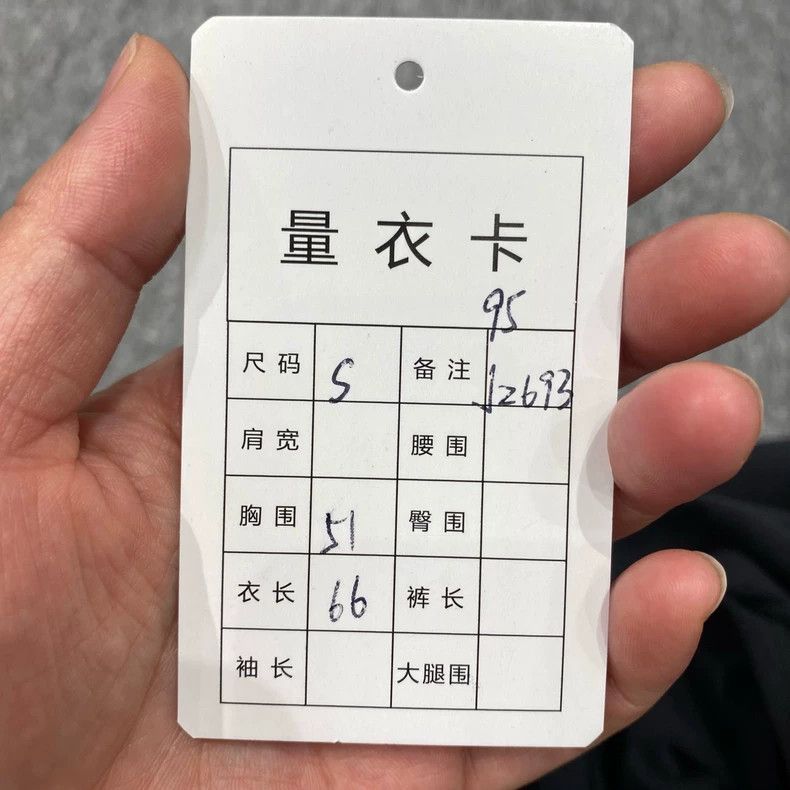 量衣卡
95
尺码 S 备注 J2693
肩宽 腰围
胸围 51 臀围
衣长 66 裤长
袖长 大腿围